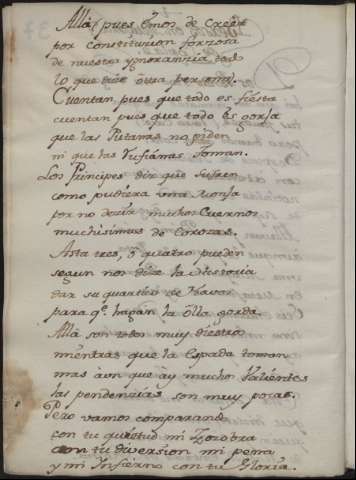 Allà (pues emos de Creer
por constitucion forzosa
de nuestra ygnorancia, todo
lo que dice otra persona)
Cuentan, pues que todo es fiesta
cuentan pues que todo es gorja
que las Putanas no piden
ni que las Rufianas toman.
Los Principes diz que sufren
como pudiera una Monja
por no decir muchos Cuernos
muchisimas de Coronas.
Asta tres, ò quatro pueden
segun nos dize la Historia
dar su quartico de Havas
para q.e hagan la òlla gorda.
Allà son todos muy diestros
mientras que la Espada toman
mas aun que ay mucho Valientes
las pendencias son muy pocas.
Pero vamos comparando
con tu quietud mi Zozobra
con tu diversion mi pena
y mi Infierno con tu Gloria.